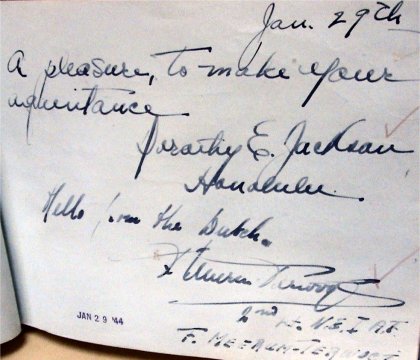 Jan. 29th
A pleasure, to make your
aquintance
Dorothy E. Jackson
Honolulu.
Hello from the Dutch.
2nd Lt. N.E.I. A.F.
JAN 29 '44